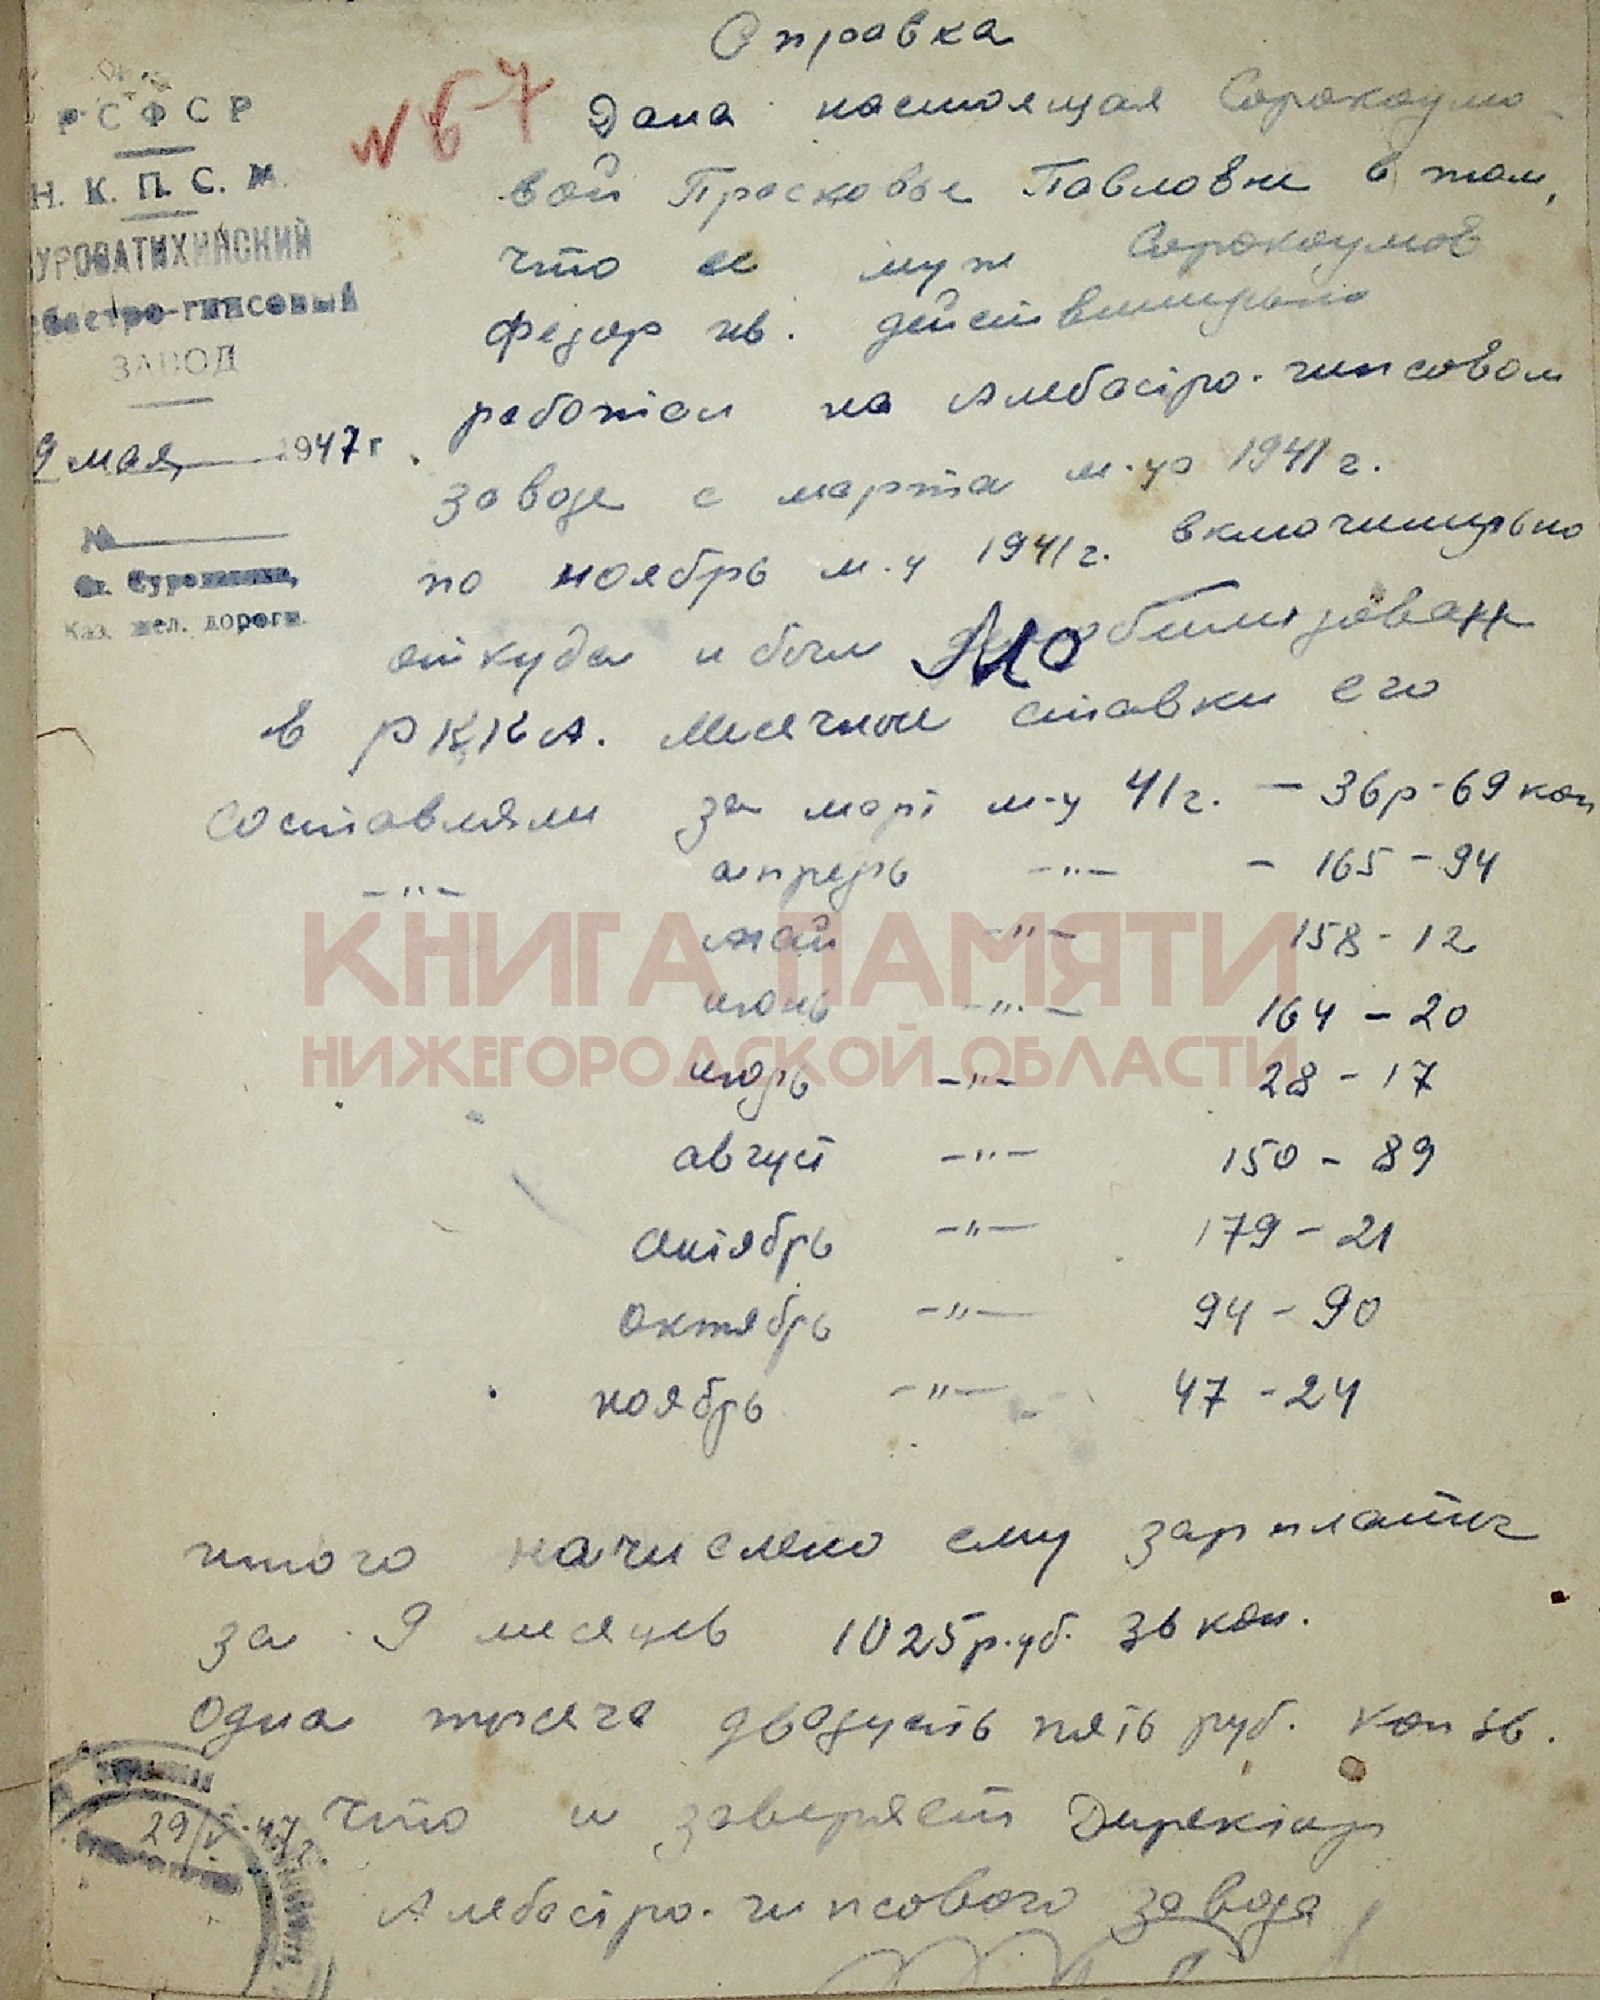 Справка
№ 67
РСФСР
Н. К. П. С. М.
УРОВАТИХИНСКИЙ
бастро-гипсовый
ЗАВОД
9 мая 1947 г.
№
Ст. Суроватиха,
Каз. жел. дороги
Дана настоящая Сорокоумо-
вой Просковье Павловне в том,
что ее муж Сорокоумов
Федор ив. действительно
работал на Алебастро-гипсовом
заводе с марта м-ца 1941 г.
по ноябрь м-ц 1941 г. включительно
откуда и был Мобилизован
в РККА. Месячные ставки его
составляли за март м-ц 41 г. – 36 р-69 коп
–"– апрель –"– – 165 – 94
май –"– 158 – 12
июнь –"– 164 – 20
июль –"– 28 – 17
август –"– 150 – 89
сентябрь –"– 179 – 21
октябрь –"– 94 – 90
ноябрь –"– 47 – 24
КНИГА ПАМЯТИ
НИЖЕГОРОДСКОЙ ОБЛАСТИ
итого начислено ему зарплаты
за 9 месяцев 1025 руб. 36 коп.
Одна тысяча двадцать пять руб. коп 36.
Что и заверяет Директор
Алебастро-гипсового завода
29/V-47 г.